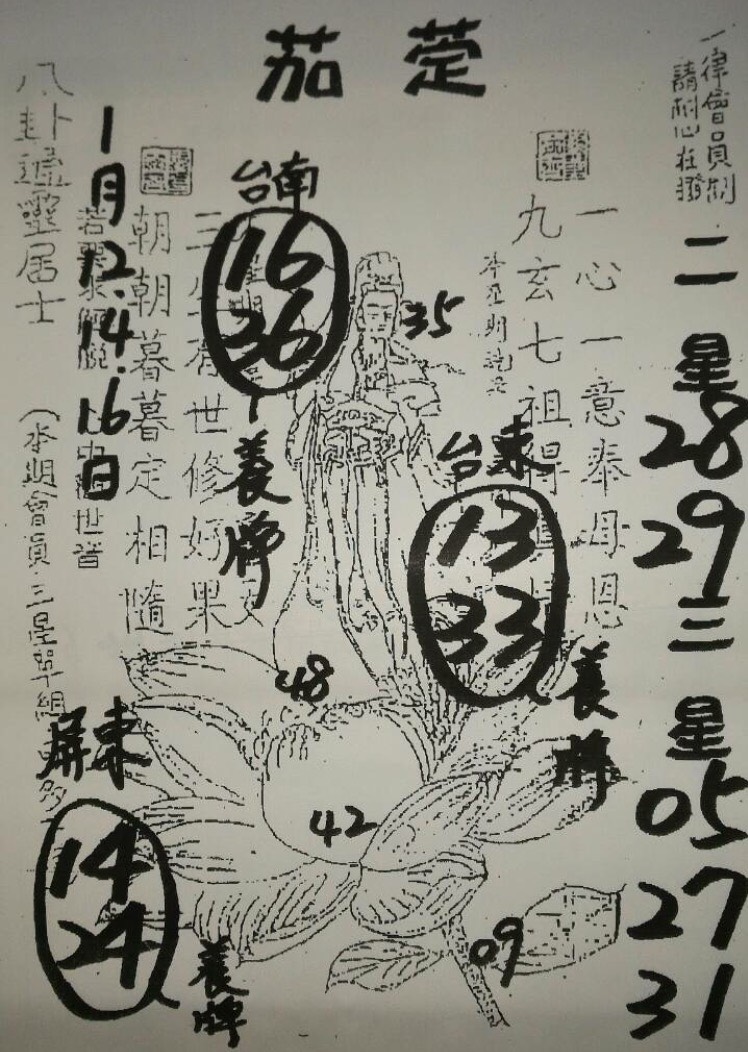 茄萣
一律會員制
請耐心在撥
二星
28
29
三星
05
27
31
一心一意奉母恩
九玄七祖得
35
台東
13
33
養牌
台南
16
36
養牌
三 有世修好果
朝朝暮暮定相隨
1月12.14.16日
八卦 靈居士
(本期會員 三星單組
48
42
09
屏東
14
24
養牌